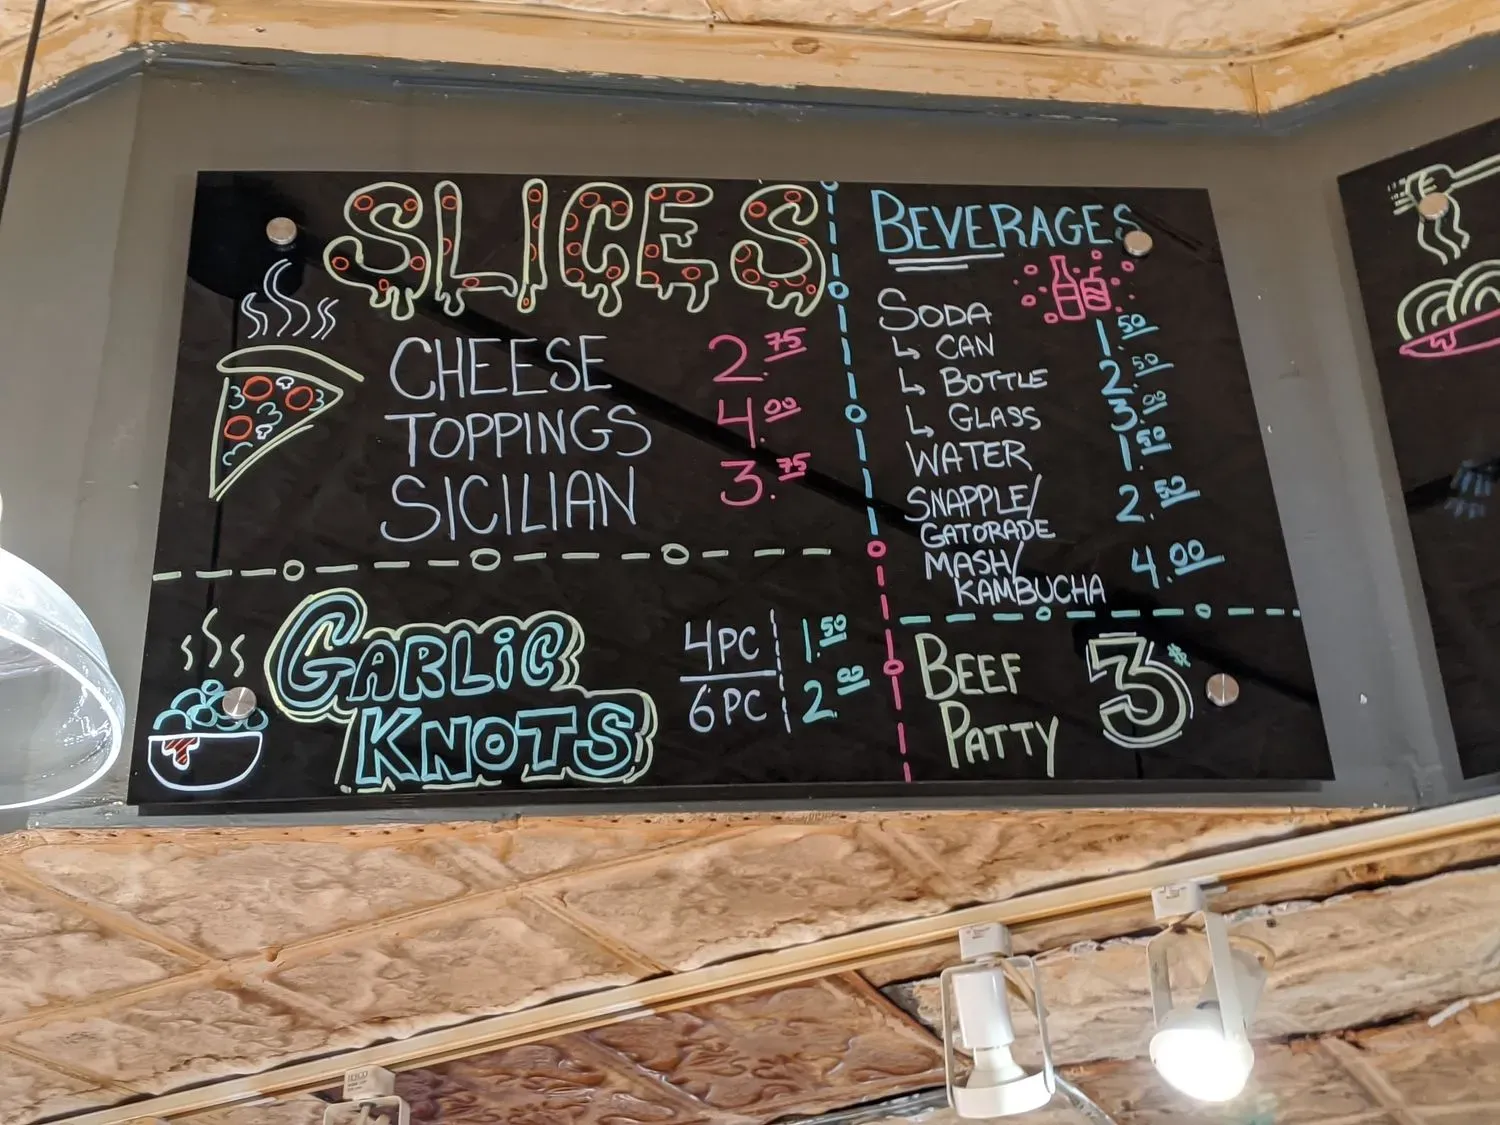 SLICES
CHEESE 2.75
TOPPINGS 4.00
SICILIAN 3.75
GARLIC
KNOTS
4PC 1.50
6PC 2.00
BEVERAGES
SODA
↳ CAN 1.50
↳ BOTTLE 2.50
↳ GLASS 3.00
WATER 1.50
SNAPPLE/
GATORADE 2.50
MASH/
KAMBUCHA 4.00
BEEF
PATTY
3$